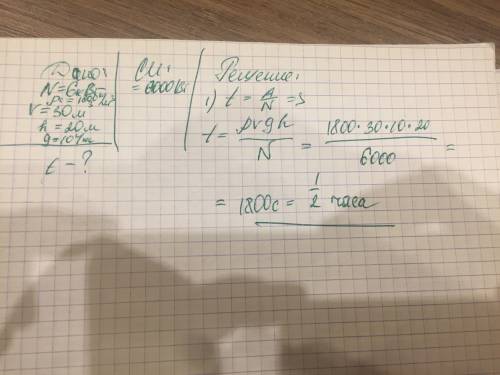 Дано:
N = 6кВт
V = 30м
h = 20м
t - ?
СИ:
= 6000 Вт
Решение:
1) t = A/N =>
t = ρvgh/N = 1800·30·10·20/6000 =
= 1800с = 1/2 часа